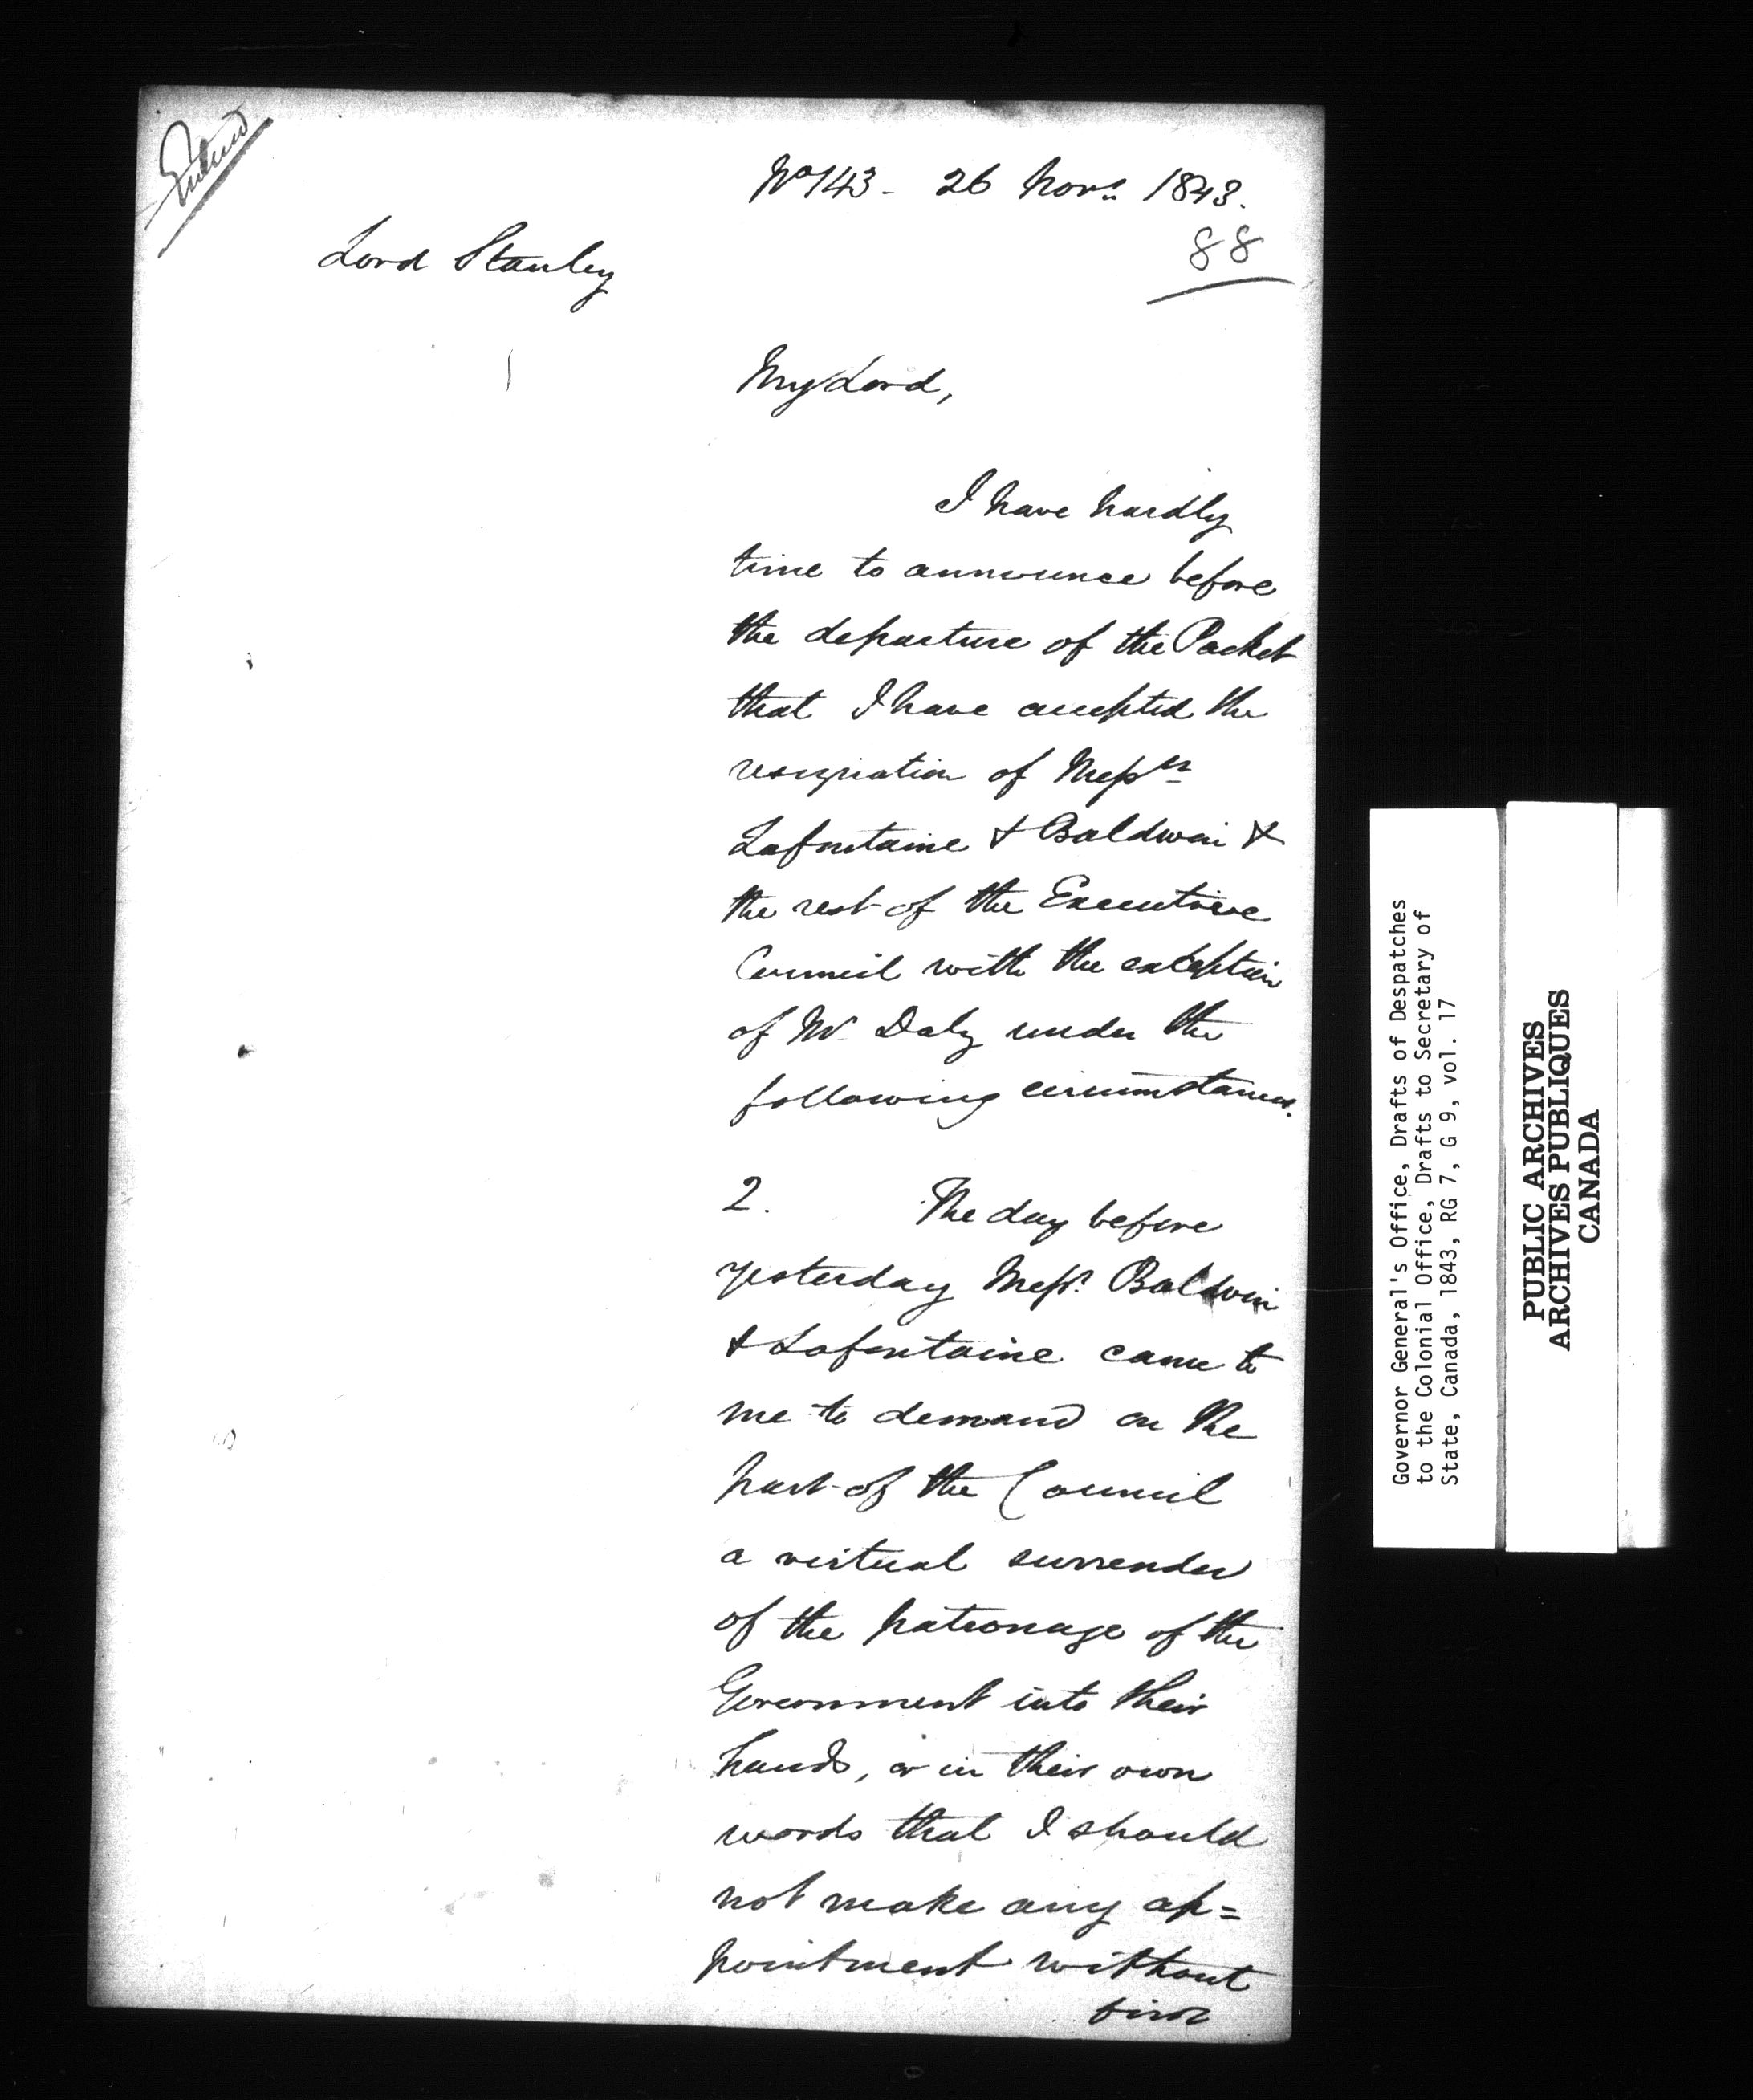 Entered
No 143 - 26 Novr. 1843.
88
Lord Stanley
My Lord,
I have hardly
time to announce before
the departure of the Packet
that I have accepted the
resignation of Messrs
Lafontaine & Baldwin &
the rest of the Executive
Council with the exception
of Mr Daly under the
following circumstances.
2. The day before
yesterday Messrs. Baldwin
& Lafontaine came to
me to demand on the
part of the Council
a virtual surrender
of the patronage of the
Government into their
hands, or in their own
words that I should
not make any ap=
pointment without
first
Governor General's Office, Drafts of Despatches
to the Colonial Office, Drafts to Secretary of
State, Canada, 1843, RG 7, G 9, vol. 17
PUBLIC ARCHIVES
ARCHIVES PUBLIQUES
CANADA